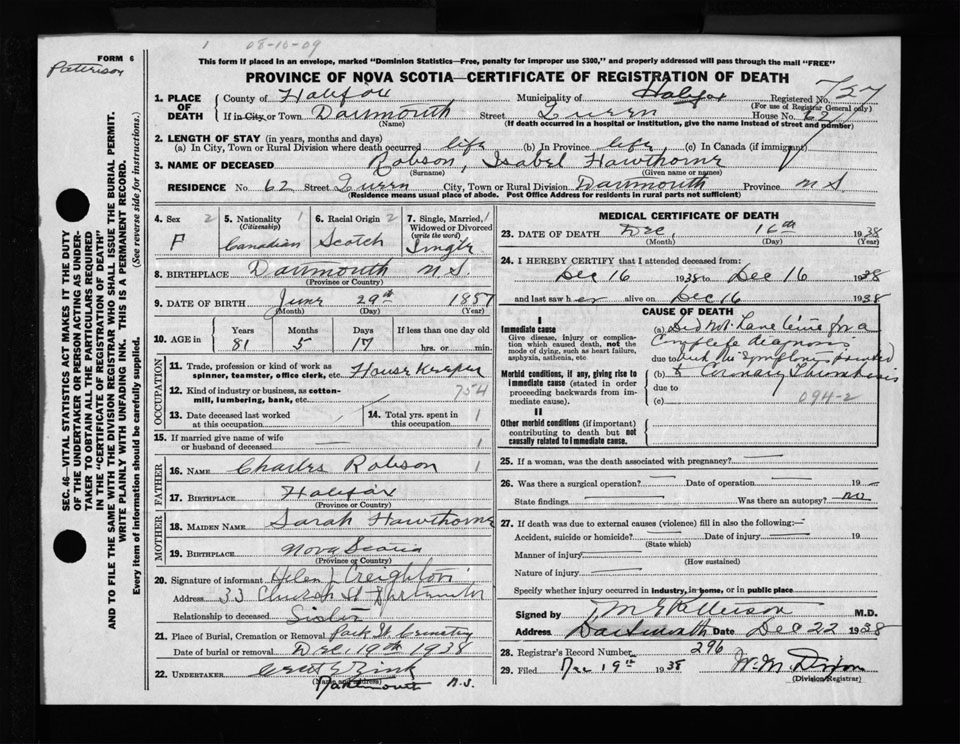 1 08-10-09
This form if placed in an envelope, marked "Dominion Statistics—Free, penalty for improper use $300," and properly addressed will pass through the mail "FREE"
FORM 6
Patterson
PROVINCE OF NOVA SCOTIA—CERTIFICATE OF REGISTRATION OF DEATH
SEC. 46—VITAL STATISTICS ACT MAKES IT THE DUTY
OF THE UNDERTAKER OR PERSON ACTING AS UNDER-
TAKER TO OBTAIN ALL THE PARTICULARS REQUIRED
IN THE "CERTIFICATE OF REGISTRATION OF DEATH"
AND TO FILE THE SAME WITH THE DIVISION REGISTRAR WHO SHALL ISSUE THE BURIAL PERMIT.
WRITE PLAINLY WITH UNFADING INK. THIS IS A PERMANENT RECORD.
Every item of information should be carefully supplied. (See reverse side for instructions.)
1. PLACE OF DEATH County of Halifax Municipality of Halifax Registered No. 727
(For use of Registrar General only)
If in City or Town Dartmouth Street Queen House No. 62
(Name) (If death occurred in a hospital or institution, give the name instead of street and number)
2. LENGTH OF STAY (in years, months and days)
(a) In City, Town or Rural Division where death occurred life (b) In Province life (c) In Canada (if immigrant)
3. NAME OF DECEASED Robson, Isabel Hawthorne
(Surname) (Given name or names)
RESIDENCE No. 62 Street Queen City, Town or Rural Division Dartmouth Province N.S.
(Residence means usual place of abode. Post Office Address for residents in rural parts not sufficient)
4. Sex 2 F
5. Nationality 1 (Citizenship) Canadian
6. Racial Origin 2 Scotch
7. Single, Married, Widowed or Divorced (write the word) 1 Single
8. BIRTHPLACE Dartmouth N.S.
(Province or Country)
9. DATE OF BIRTH June 29th 1857
(Month) (Day) (Year)
10. AGE in Years Months Days If less than one day old
81 5 17 hrs. or min.
OCCUPATION
11. Trade, profession or kind of work as spinner, teamster, office clerk, etc. House Keeper
12. Kind of industry or business, as cotton-mill, lumbering, bank, etc. 754
13. Date deceased last worked at this occupation
14. Total yrs. spent in this occupation 1
15. If married give name of wife or husband of deceased 1
FATHER
16. NAME Charles Robson 1
17. BIRTHPLACE Halifax
(Province or Country)
MOTHER
18. MAIDEN NAME Sarah Hawthorne
19. BIRTHPLACE Nova Scotia
(Province or Country)
20. Signature of informant Helen L Creighton
Address 33 Church St Dartmouth
Relationship to deceased Sister
21. Place of Burial, Cremation or Removal Park St. Cemetery
Date of burial or removal Dec. 19th 1938
22. UNDERTAKER Zink
(Name and address)
Dartmouth N.S.
MEDICAL CERTIFICATE OF DEATH
23. DATE OF DEATH Dec. 16th 1938
(Month) (Day) (Year)
24. I HEREBY CERTIFY that I attended deceased from:
Dec 16 1938 to Dec 16 1938
and last saw her alive on Dec 16 1938
CAUSE OF DEATH
I
Immediate cause
Give disease, injury or complication which caused death, not the mode of dying, such as heart failure, asphyxia, asthenia, etc
Morbid conditions, if any, giving rise to immediate cause (stated in order proceeding backwards from immediate cause).
II
Other morbid conditions (if important) contributing to death but not causally related to immediate cause.
(a) Did not have time for a
complete diagnosis
due to but the symptoms pointed
(b) to Coronary Thrombosis
due to
(c) 094-2
25. If a woman, was the death associated with pregnancy?
26. Was there a surgical operation? Date of operation 19
State findings Was there an autopsy? no
27. If death was due to external causes (violence) fill in also the following:
Accident, suicide or homicide? Date of injury 19
(State which)
Manner of injury
(How sustained)
Nature of injury
Specify whether injury occurred in industry, in home, or in public place
Signed by M.D.
Address Dartmouth Date Dec 22 1938
28. Registrar's Record Number 296
29. Filed Dec 19th 1938 W. M. Dixon
(Division Registrar)